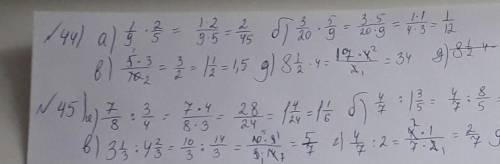 №44) а) 1/9 · 2/5 = 1·2/9·5 = 2/45 б) 3/20 · 5/9 = 3·5/20·9 = 1·1/4·3 = 1/12
в) 5·3/10 2 = 3/2 = 1 1/2 = 1,5 д) 8 1/2 · 4 = 17·4 2/2 1 = 34 д) 8 1/2 · 4
№45) а) 7/8 : 3/4 = 7·4/8·3 = 28/24 = 1 4/24 = 1 1/6 б) 4/7 : 1 3/5 = 4/7 : 8/5 =
в) 3 1/3 : 4 2/3 = 10/3 : 14/3 = = 5/7 г) 4/7 : 2 = 4 2·1/7·2 1 = 2/7